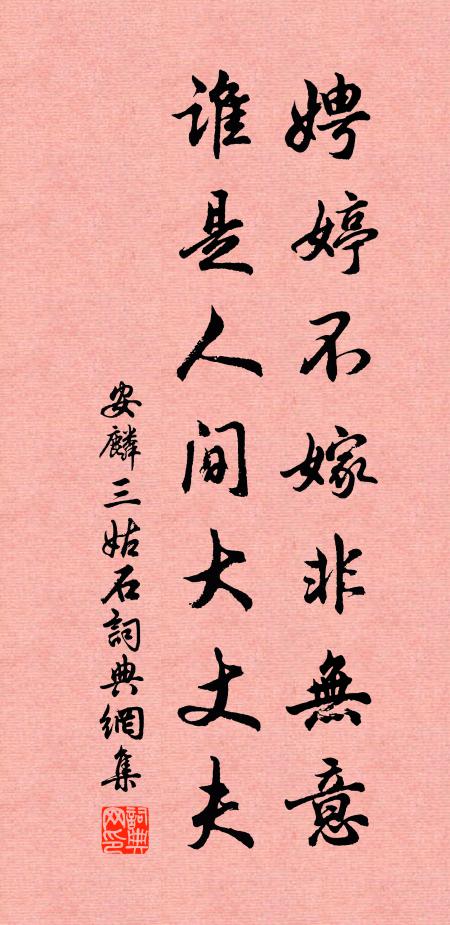 娉婷不嫁非無意
誰是人間大丈夫
安麟三姑石詞典網集
詞典网印